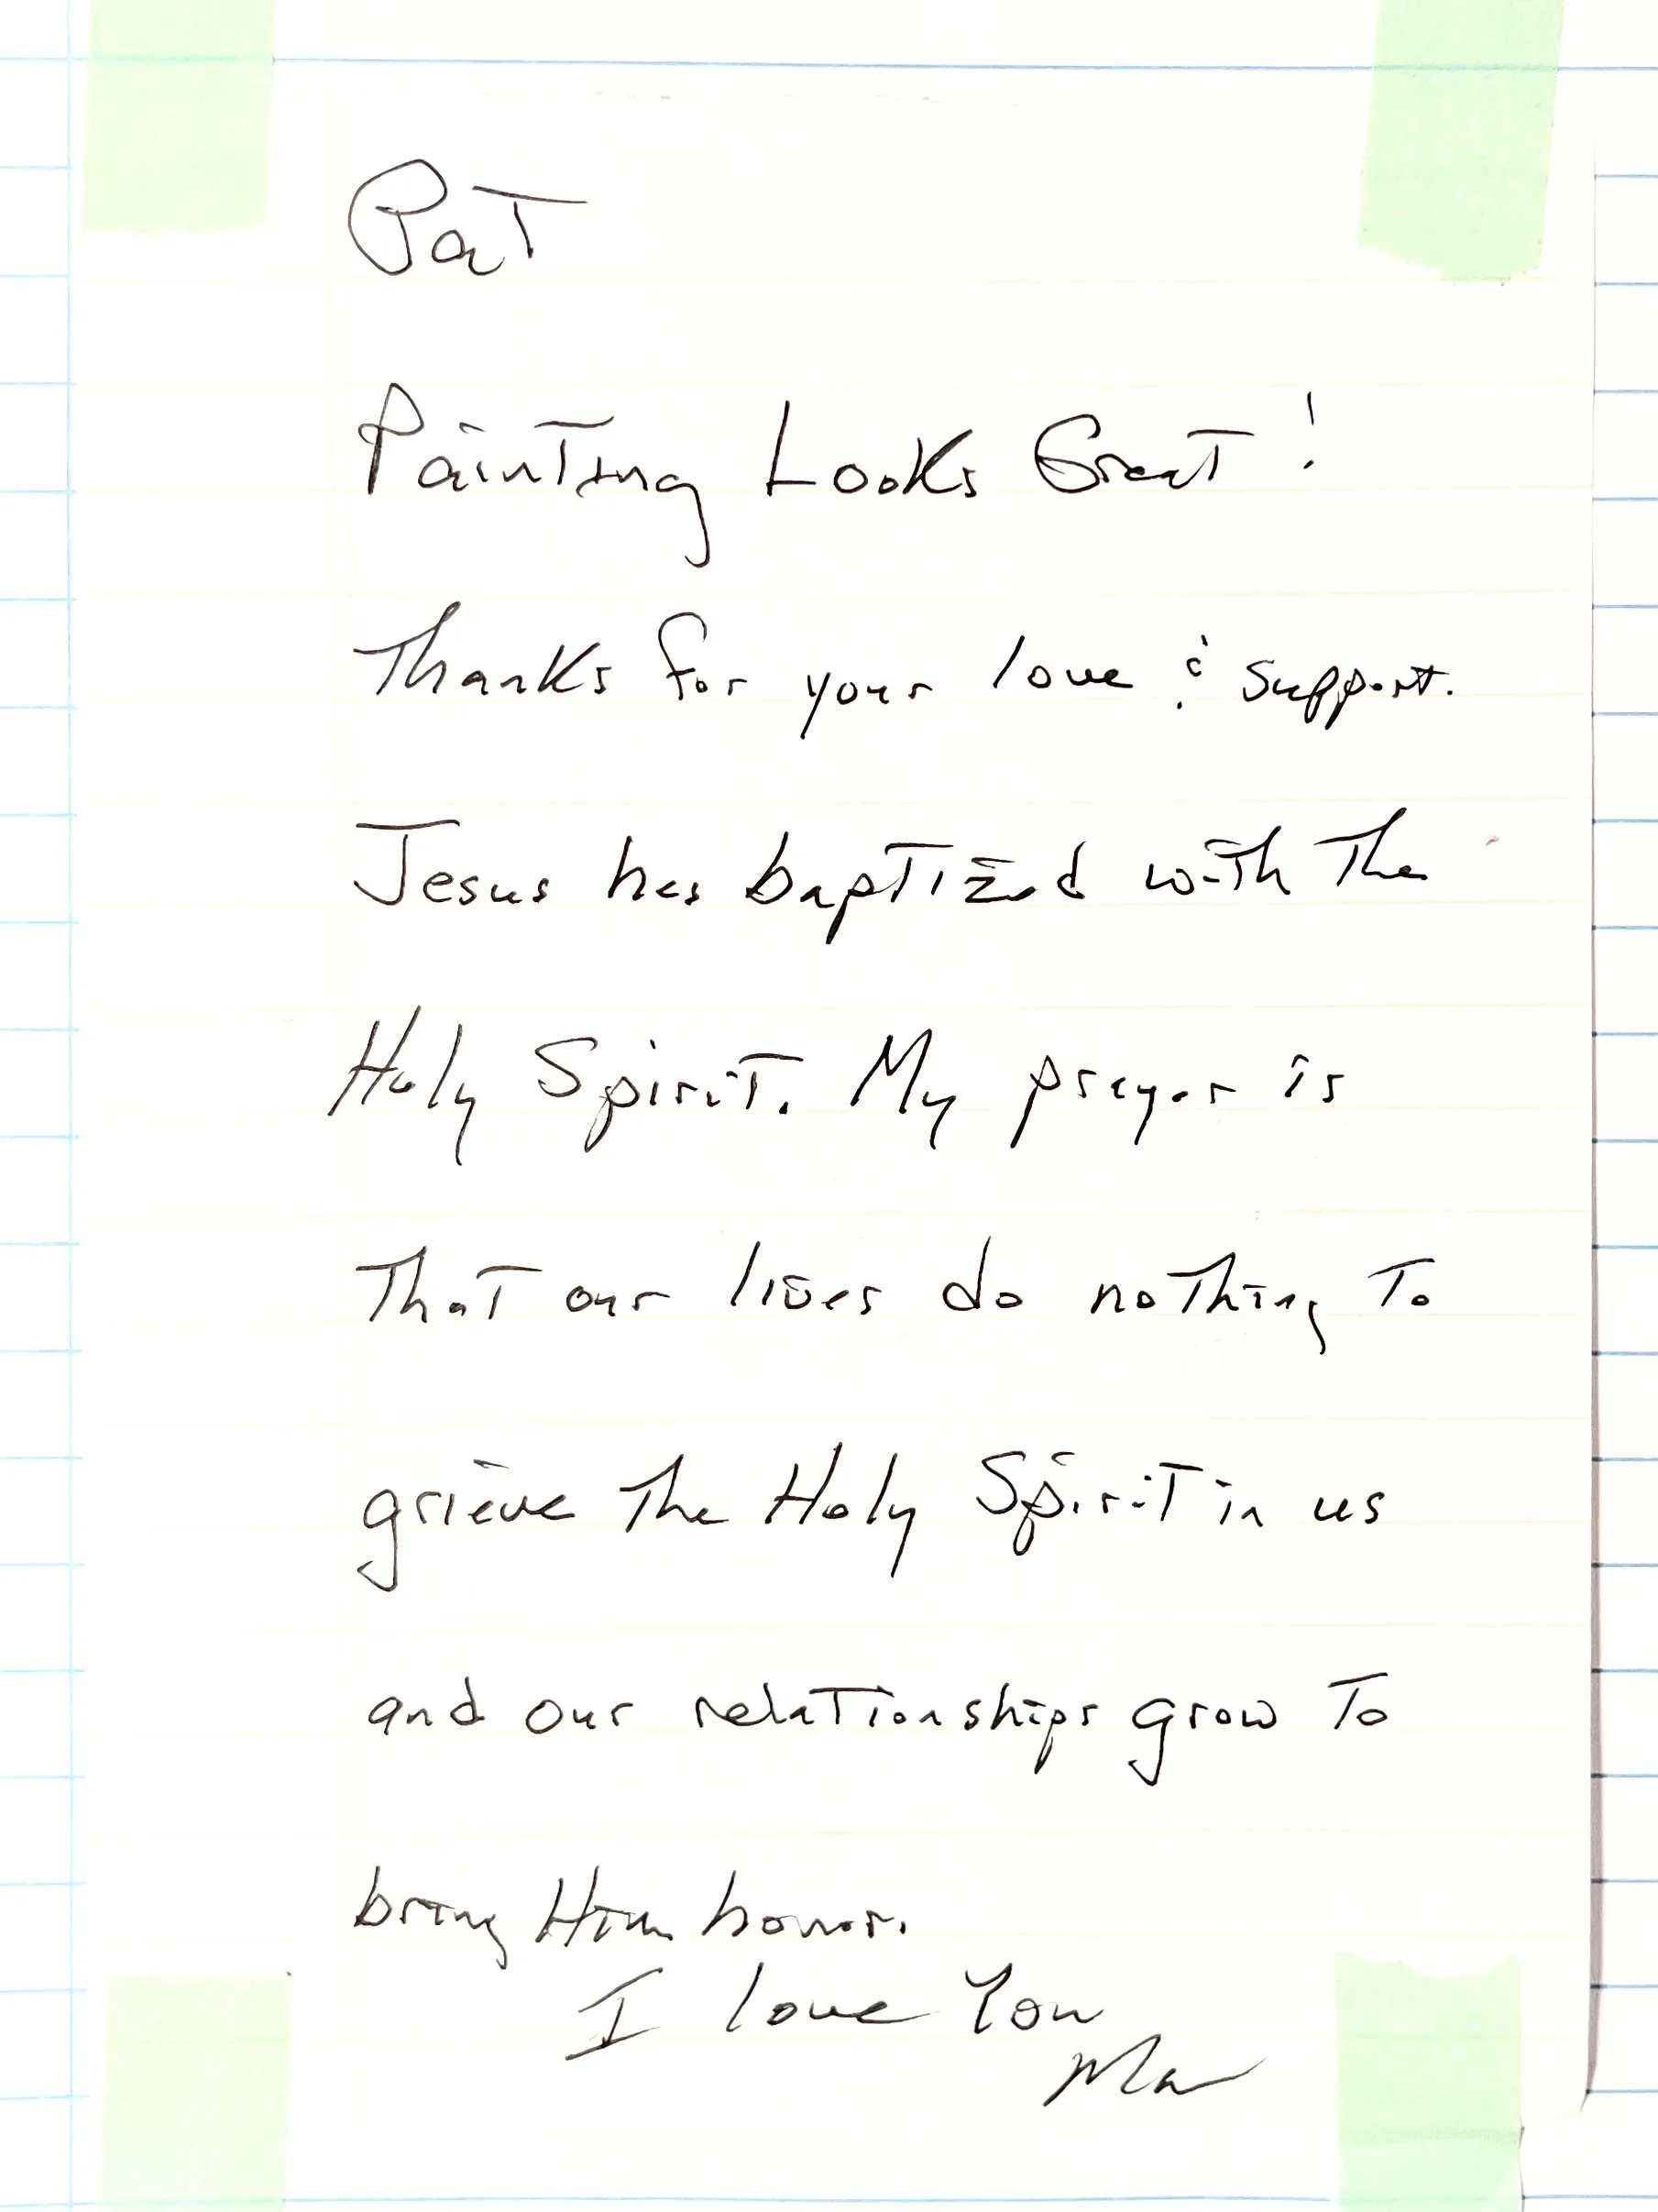 Pat
Painting Looks Great!
Thanks for your love & support.
Jesus has baptized with the
Holy Spirit. My prayer is
That our lives do nothing To
grieve The Holy Spirit in us
and our relationships grow To
bring Him honor.
I love You